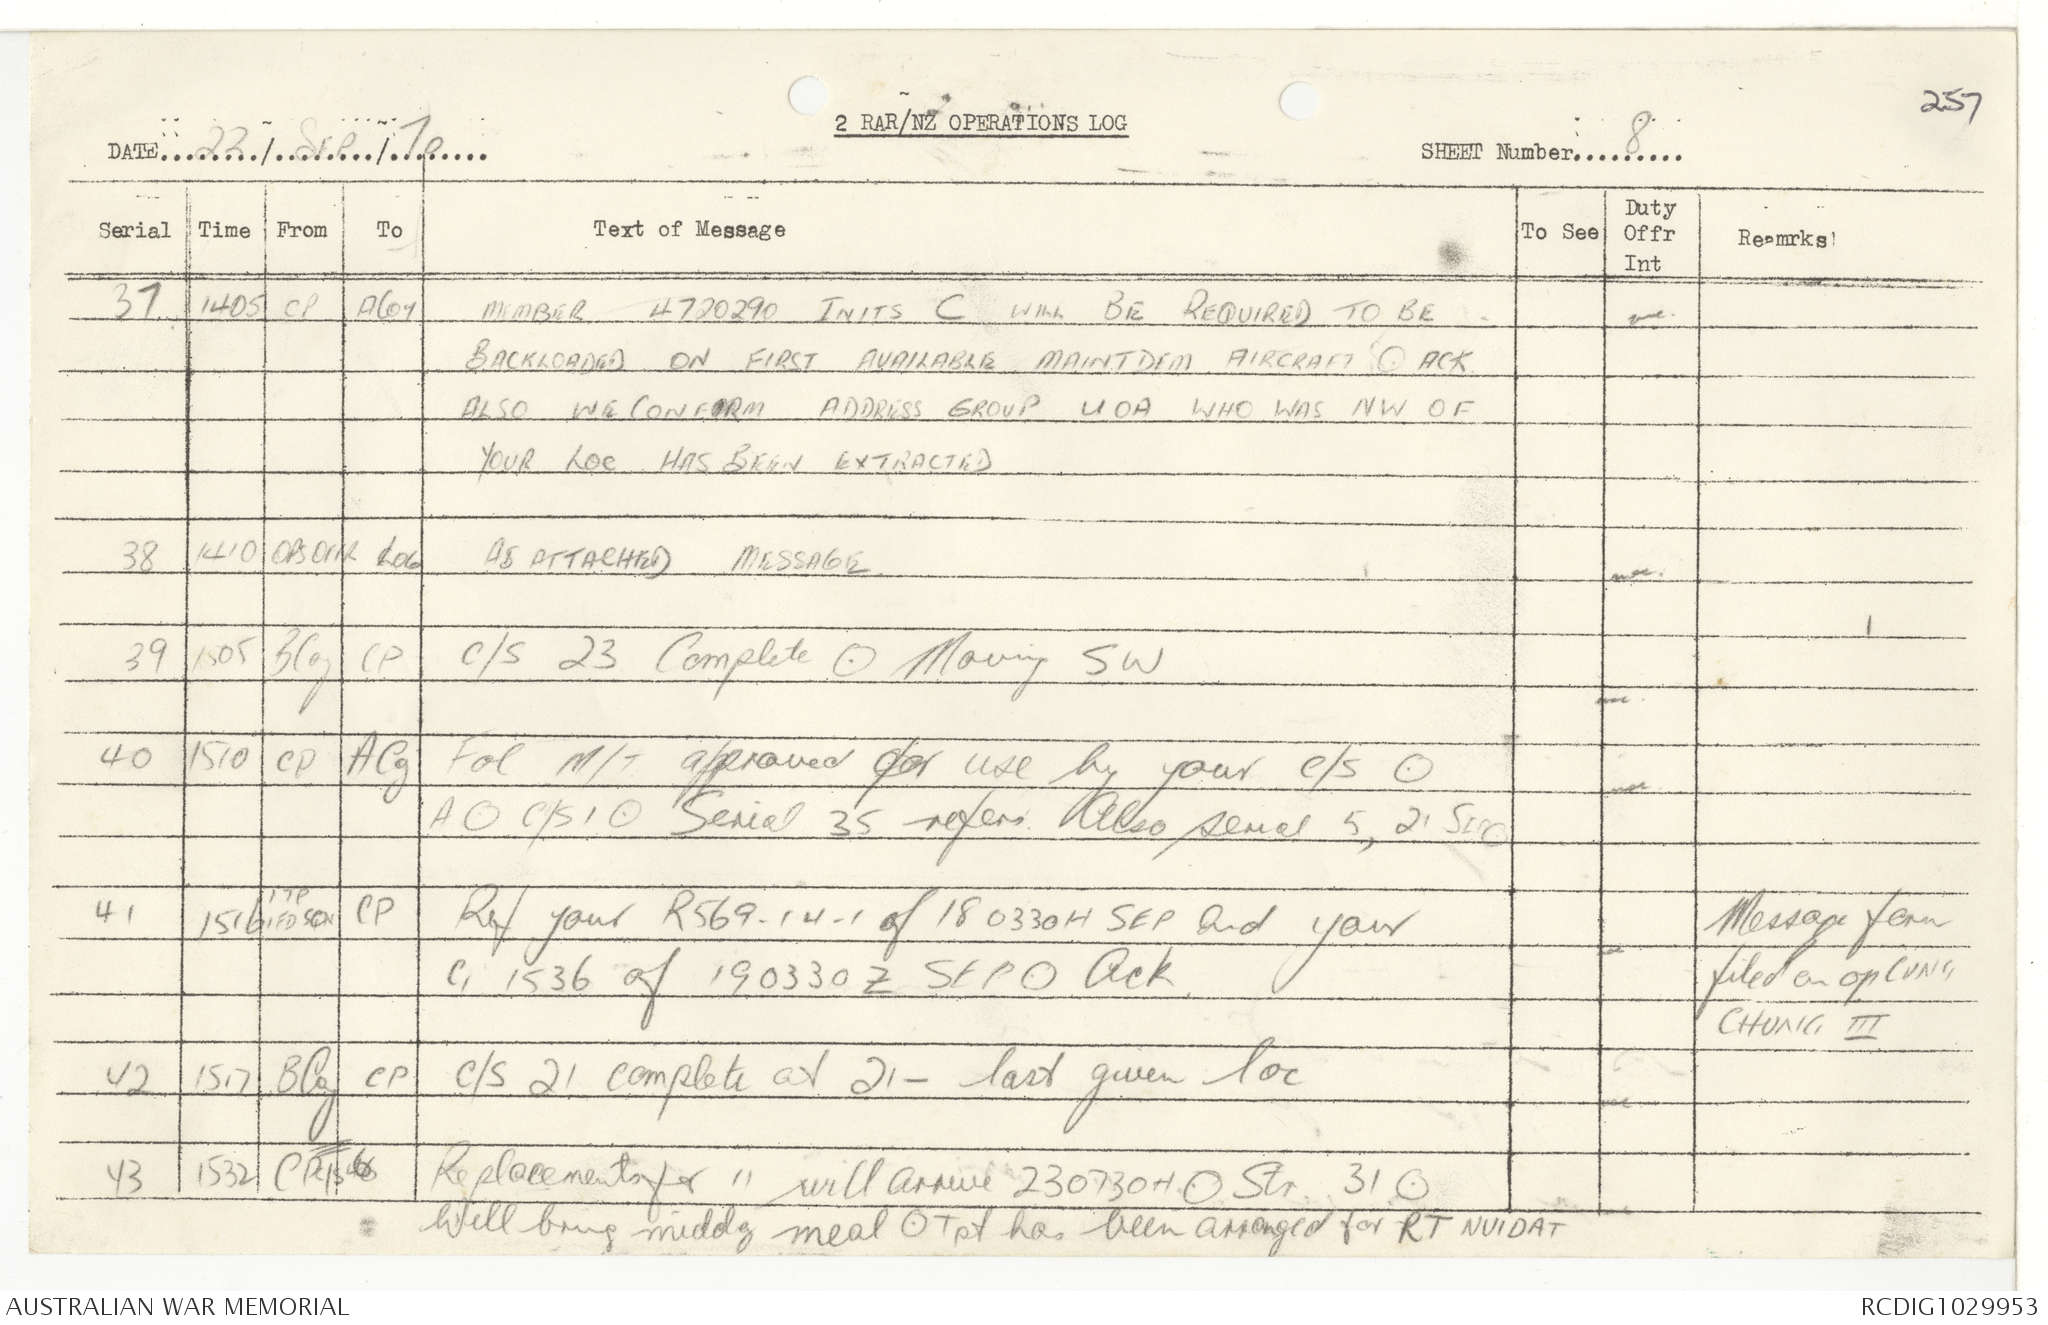 257
2 RAR/NZ OPERATIONS LOG
DATE 22/SEP/70
SHEET Number 8
Serial Time From To Text of Message To See Duty Offr Int Reamrks
37 1405 CP ACoy MEMBER 4720290 INITS C WILL BE REQUIRED TO BE
BACKLOADED ON FIRST AVAILABLE MAINTDEM AIRCRAFT O ACK
ALSO WE CONFORM ADDRESS GROUP UOA WHO WAS NW OF
YOUR LOC HAS BEEN EXTRACTED
38 1410 OPSOFFR LOG AS ATTACHED MESSAGE
39 1505 BCoy CP C/S 23 Complete O Moving SW
40 1510 CP ACoy Fol M/T approved for use by your C/S O
A O C/S 1 O Serial 35 refers. Also serial 5, 21 SEP O
41 1516 CP Ref your R569-14-1 of 18 0330H SEP and your Message form
G 1536 of 190330Z SEP O Ack filed on op CUNG
CHUNG III
42 1517 BCoy CP C/S 21 complete at 21- last given loc
43 1532 CP Replacements for 11 will arrive 230730H O Str. 31 O
Will bring midday meal O Tpt has been arranged for RT NUIDAT
AUSTRALIAN WAR MEMORIAL
RCDIG1029953